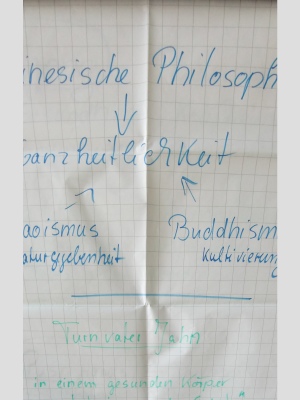 inesische Philosoph
anzheitlichkeit
aoismus Buddhism
aturgegebenheit Kultivierung
Turnvater Jahn
in einem gesunden Körper